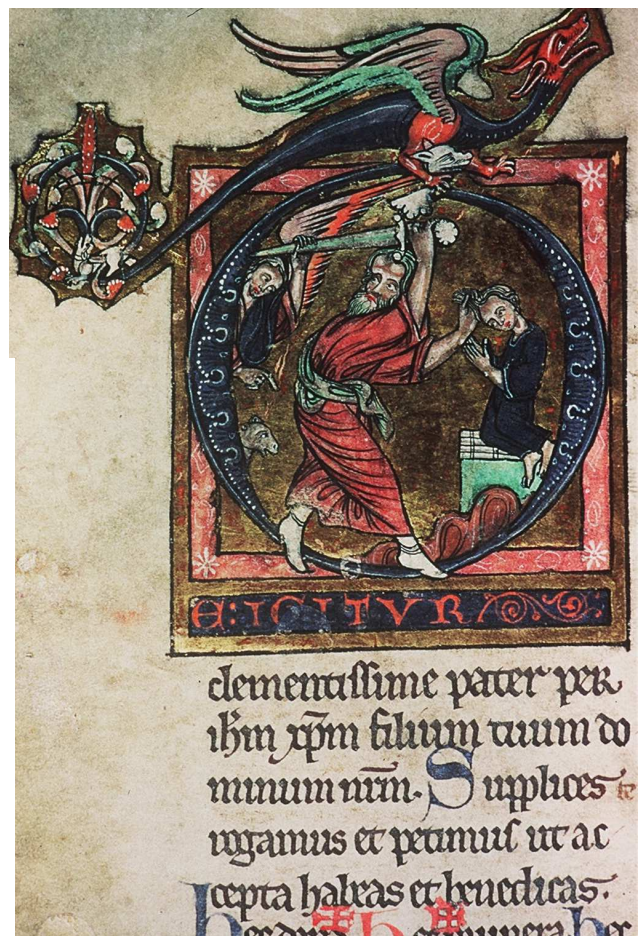 TE: IGITVR
clementissime pater per
ih̄m xp̄m filium tuum do
minum nr̄m. Supplices te
rogamus et petimus ut ac
cepta habeas et benedicas.
munera hec